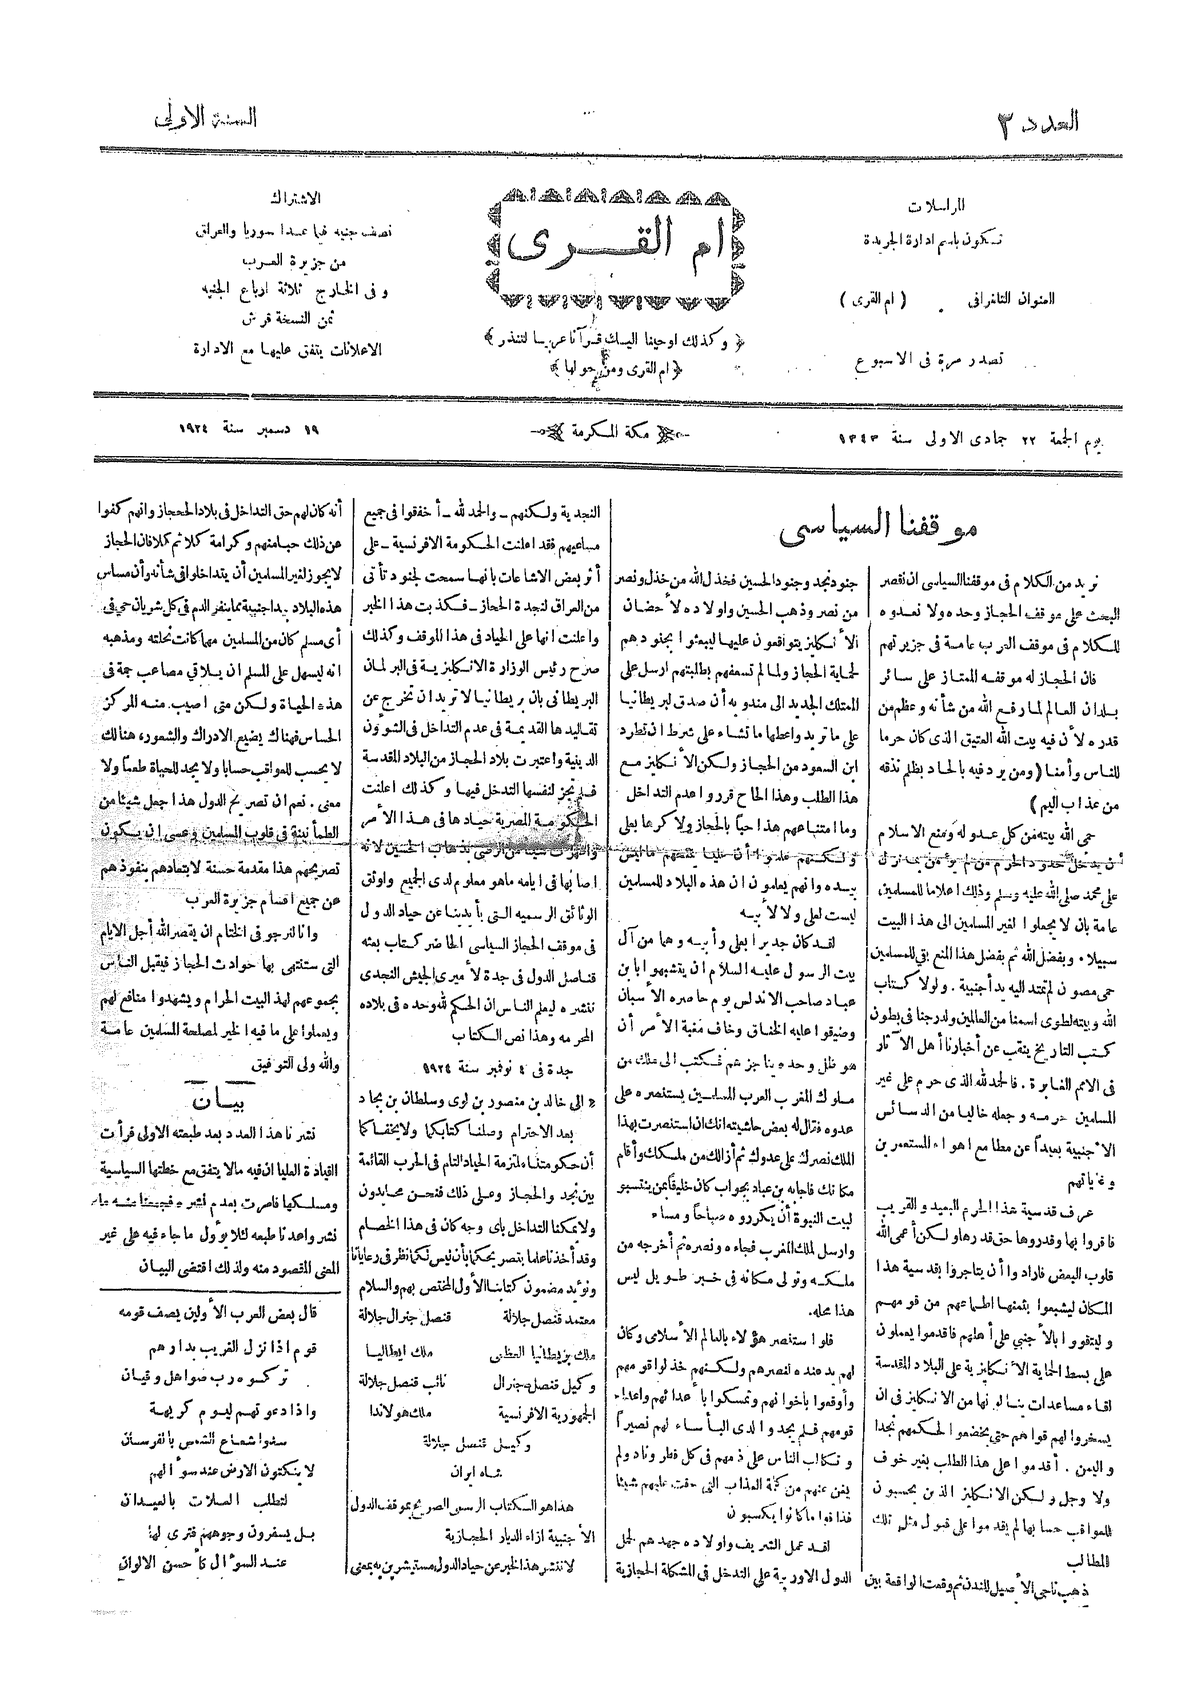 العدد ٣
السنة الاولى
المراسلات
تكون باسم ادارة الجريدة
العنوان التلغرافى ( ام القرى )
تصدر مرة فى الاسبوع
ام القرى
﴿ وكذلك اوحينا اليك قرآنا عربيا لتنذر ﴾
﴿ ام القرى ومن حولها ﴾
الاشتراك
نصف جنيه فيما عدا سوريا والعراق
من جزيرة العرب
وفى الخارج ثلاثة ارباع الجنيه
ثمن النسخة قرش
الاعلانات يتفق عليها مع الادارة
يوم الجمعة ٢٢ جمادى الاولى سنة ١٣٤٣
مكة المكرمة
١٩ دسمبر سنة ١٩٢٤
موقفنا السياسى
نريد من الكلام فى موقفنا السياسى ان نقصر
البحث على موقف الحجاز وحده ولا نعدوه
للكلام فى موقف العرب عامة فى جزيرتهم
فان الحجاز له موقفه الممتاز على سائر
بلدان العالم لما رفع الله من شأنه وعظم من
قدره لأن فيه بيت الله العتيق الذى كان حرما
للناس وأمنا ( ومن يرد فيه بالحاد بظلم نذقه
من عذاب اليم )
حمى الله بيته من كل عدو له ومنع الاسلام
أن يدخل حدود الحرم من لم يؤمن بما نزل
على محمد صلى الله عليه وسلم وذلك اعلاما للمسلمين
عامة بان لا يجعلوا لغير المسلمين الى هذا البيت
سبيلا . وبفضل الله ثم بفضل هذا المنع بقى للمسلمين
حمى مصون لم تمتد اليه يد أجنبية . ولولا كتاب
الله وبيته لطوى اسمنا من العالمين ولدرجنا فى بطون
كتب التاريخ ينقب عن أخبارنا أهل الآثار
فى الامم الغابرة . فالحمد لله الذى حرم على غير
المسلمين حرمه وجعله خاليا من الدسائس
الأجنبية بعيداً عن مطامع اهواء المستعمرين
وغاياتهم
عرف قدسية هذا الحرم البعيد والقريب
فاقروا بها وقدروها حق قدرها ولكن أعمى الله
قلوب البعض فارادوا أن يتاجروا بقدسية هذا
المكان ليشبعوا بثمنها اطماعهم من قومهم
وليتقووا بالأجنبي على أهلهم فاقدموا يعملون
على بسط الحماية الأنكليزية على البلاد المقدسة
لقاء مساعدات ينالونها من الانكليز فى ان
يسخروا لهم قواهم حتى يخضعوا لحكمهم نجدا
واليمن . أقدموا على هذا الطلب بغير خوف
ولا وجل ولكن الانكليز الذين يحسبون
للعواقب حسابها لم يقدموا على قبول مثل تلك
المطالب
ذهب ناجى الأصيل للندن ثم وقعت الواقعة بين
جنود نجد وجنود الحسين فخذل الله من خذل ونصر
من نصر وذهب الحسين واولاده لأحضان
الأنكليز يتواقعون عليها ليبعثوا بجنودهم
لحماية الحجاز ولما لم تسعفهم بطلبتهم ارسل على
المتلك الجديد الى مندوبه أن صدق لبريطانيا
على ما تريد واعطها ما تشاء على شرط ان تطرد
ابن السعود من الحجاز ولكن الأنكليز مع
هذا الطلب وهذا الحاح قرروا عدم التداخل
وما امتناعهم هذا حباً بالحجاز ولا كرها بعلى
ولكنهم علموا أن عليا يمنحهم ما ليس
بيده وانهم يعلمون ان هذه البلاد للمسلمين
ليست لعلى ولا لأبيه
لقد كان جديرا بعلى وأبيه وهما من آل
بيت الرسول عليه السلام ان يتشبهوا بابن
عباد صاحب الاندلس يوم حاصره الأسبان
وضيقوا عليه الخناق وخاف مغبة الأمر أن
هو ظل وحده يناجزهم فكتب الى ملك من
ملوك المغرب العرب المسلمين يستنصره على
عدوه فقال له بعض حاشيته انك ان استنصرت بهذا
الملك نصرك على عدوك ثم أزالك من ملكك وأقام
مكانك فاجابه بن عباد بجواب كان خليقاً بمن ينتسبو
لبيت النبوة أن يكرروه صباحاً ومساء
وارسل لملك المغرب فجاءه ونصره ثم أخرجه من
ملكه وتولى مكانه فى خبر طويل ليس
هذا محله.
فلو استنصر هؤلاء بالعالم الأسلامى وكان
لهم يد عنده لنصرهم ولكنهم خذلوا قومهم
وأوقعوا باخوانهم وتمسكوا بأعدائهم واعداء
قومهم فلم يجدوا لدى البأساء لهم نصيراً
وتكالب الناس على ذمهم فى كل قطر وناد ولم
يغن عنهم من كلمة العذاب التى حقت عليهم شيئا
فذاقوا ما كانوا يكسبون
لقد عمل الشريف واولاده جهدهم لحمل
الدول الاوربية على التدخل فى المشكلة الحجازية
النجدية ولكنهم - والحمد لله - أخفقوا فى جميع
مساعيهم فقد اعلنت الحكومة الافرنسية - على
أثر بعض الاشاعات بانها سمحت لجنود تأتى
من العراق لنجدة الحجاز - فكذبت هذا الخبر
واعلنت انها على الحياد فى هذا الموقف وكذلك
صرح رئيس الوزارة الانكليزية فى البرلمان
البريطانى بان بريطانيا لا تريد ان تخرج عن
تقاليدها القديمة فى عدم التداخل فى الشؤون
الدينية واعتبرت بلاد الحجاز من البلاد المقدسة
فلم تجز لنفسها التدخل فيها وكذلك اعلنت
الحكومة المصرية حيادها فى هذا الأمر
واظهرت شيئا من الرضى بذهاب الحسين لانه
اصابها فى ايامه ماهو معلوم لدى الجميع واوثق
الوثائق الرسميه التى بأيدينا عن حياد الدول
فى موقف الحجاز السياسى الحاضر كتاب بعثه
قناصل الدول فى جدة لأميرى الجيش النجدى
ننشره ليعلم الناس ان الحكم لله وحده فى بلاده
المحرمه وهذا نص الكتاب
جدة فى ٤ نوفمبر سنة ١٩٢٤
« الى خالد بن منصور بن لوى وسلطان بن بجاد
بعد الاحترام وصلنا كتابكما ولا يخفاكما
أن حكومتنا ملتزمة الحياد التام فى الحرب القائمة
بين نجد والحجاز وعلى ذلك فنحن محايدون
ولا يمكننا التداخل باى وجه كان فى هذا الخصام
وقد أخذنا علما بتصريحكما بأن ليس لكما نظر فى رعايانا
ونؤيد مضمون كتابنا الأول المختص بهم والسلام
معتمد قنصل جلالة قنصل جنرال جلالة
ملك بريطانيا العظمى ملك ايطاليا
وكيل قنصل جنرال نائب قنصل جلالة
الجمهورية الافرنسية ملك هولاندا
وكيل قنصل جلالة
شاه ايران
هذا هو الكتاب الرسمى الصريح بموقف الدول
الأجنبية ازاء الديار الحجازية
لا ننشر هذا الخبر عن حياد الدول مستبشرين به بمعنى
أنه كان لهم حق التداخل فى بلاد الحجاز وانهم كفوا
عن ذلك حبا منهم وكرامة كلا ثم كلا فان الحجاز
لا يجوز لغير المسلمين أن يتداخلوا فى شأنه وأن مساس
هذه البلاد بيد اجنبية مما ينفر الدم فى كل شريان حي فى
أى مسلم كان من المسلمين مهما كانت نحلته ومذهبه
انه ليسهل على المسلم ان يلاقي مصاعب جمة فى
هذه الحياة ولكن متى اصيب منه المركز
الحساس فهناك يضيع الادراك والشعور، هنالك
لا يحسب للعواقب حسابا ولا يجد للحياة طعماً ولا
معنى . نعم ان تصريح الدول هذا جعل شيئا من
الطمأنينة فى قلوب المسلمين وعسى ان يكون
تصريحهم هذا مقدمة حسنة لابتعادهم بنفوذهم
عن جميع اقسام جزيرة العرب
وانا لنرجو فى الختام ان يقصر الله أجل الايام
التى ستنتهى بها حوادث الحجاز فيقبل الناس
بجموعهم لهذ البيت الحرام ويشهدوا منافع لهم
ويعملوا على ما فيه الخير لمصلحة المسلمين عامة
والله ولى التوفيق
بيان
نشرنا هذا العدد بعد طبعته الاولى قرأت
القيادة العليا ان فيه مالا يتفق مع خطتها السياسية
ومسلكها فامرت بعدم نشره فجمعنا منه ما
نشر واعدنا طبعه لئلا يؤول ما جاء فيه على غير
المعنى المقصود منه ولذلك اقتضى البيان
قال بعض العرب الأولين يصف قومه
قوم اذا نزل الغريب بدارهم
تركوه رب صواهل وقيان
واذا دعوتهم ليوم كريهة
سدوا شعاع الشمس بالفرسان
لا ينكتون الارض عند سؤالهم
لتطلب العلات بالعيدان
بل يسفرون وجوههم فترى لها
عند السؤال كأحسن الالوان